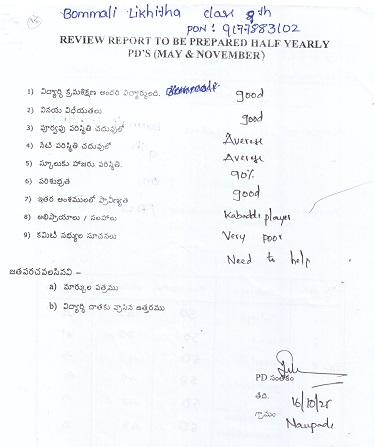 Bommali Likhitha class 8th
PDN: 9177883102
REVIEW REPORT TO BE PREPARED HALF YEARLY
PD'S (MAY & NOVEMBER)
1) విద్యార్థి క్రమశిక్షణ అందరి విద్యార్థులది. good
2) వినయ విధేయతలు good
3) పూర్వపు పరిస్థితి చదువులో Averese
4) నేటి పరిస్థితి చదువులో Averese
5) స్కూలుకు హాజరు పరిస్థితి. 90%
6) పరిశుభ్రత good
7) ఇతర అంశములలో ప్రావీణ్యత Kabaddi player
8) అభిప్రాయాలు / సలహాలు Very poor
9) కమిటీ సభ్యుల సూచనలు Need to help
జతపరచవలసినవి –
a) మార్కుల పత్రము
b) విద్యార్థి దాతకు వ్రాసిన ఉత్తరము
PD సంతకం
తేది. 16/10/25
గ్రామం Naupada